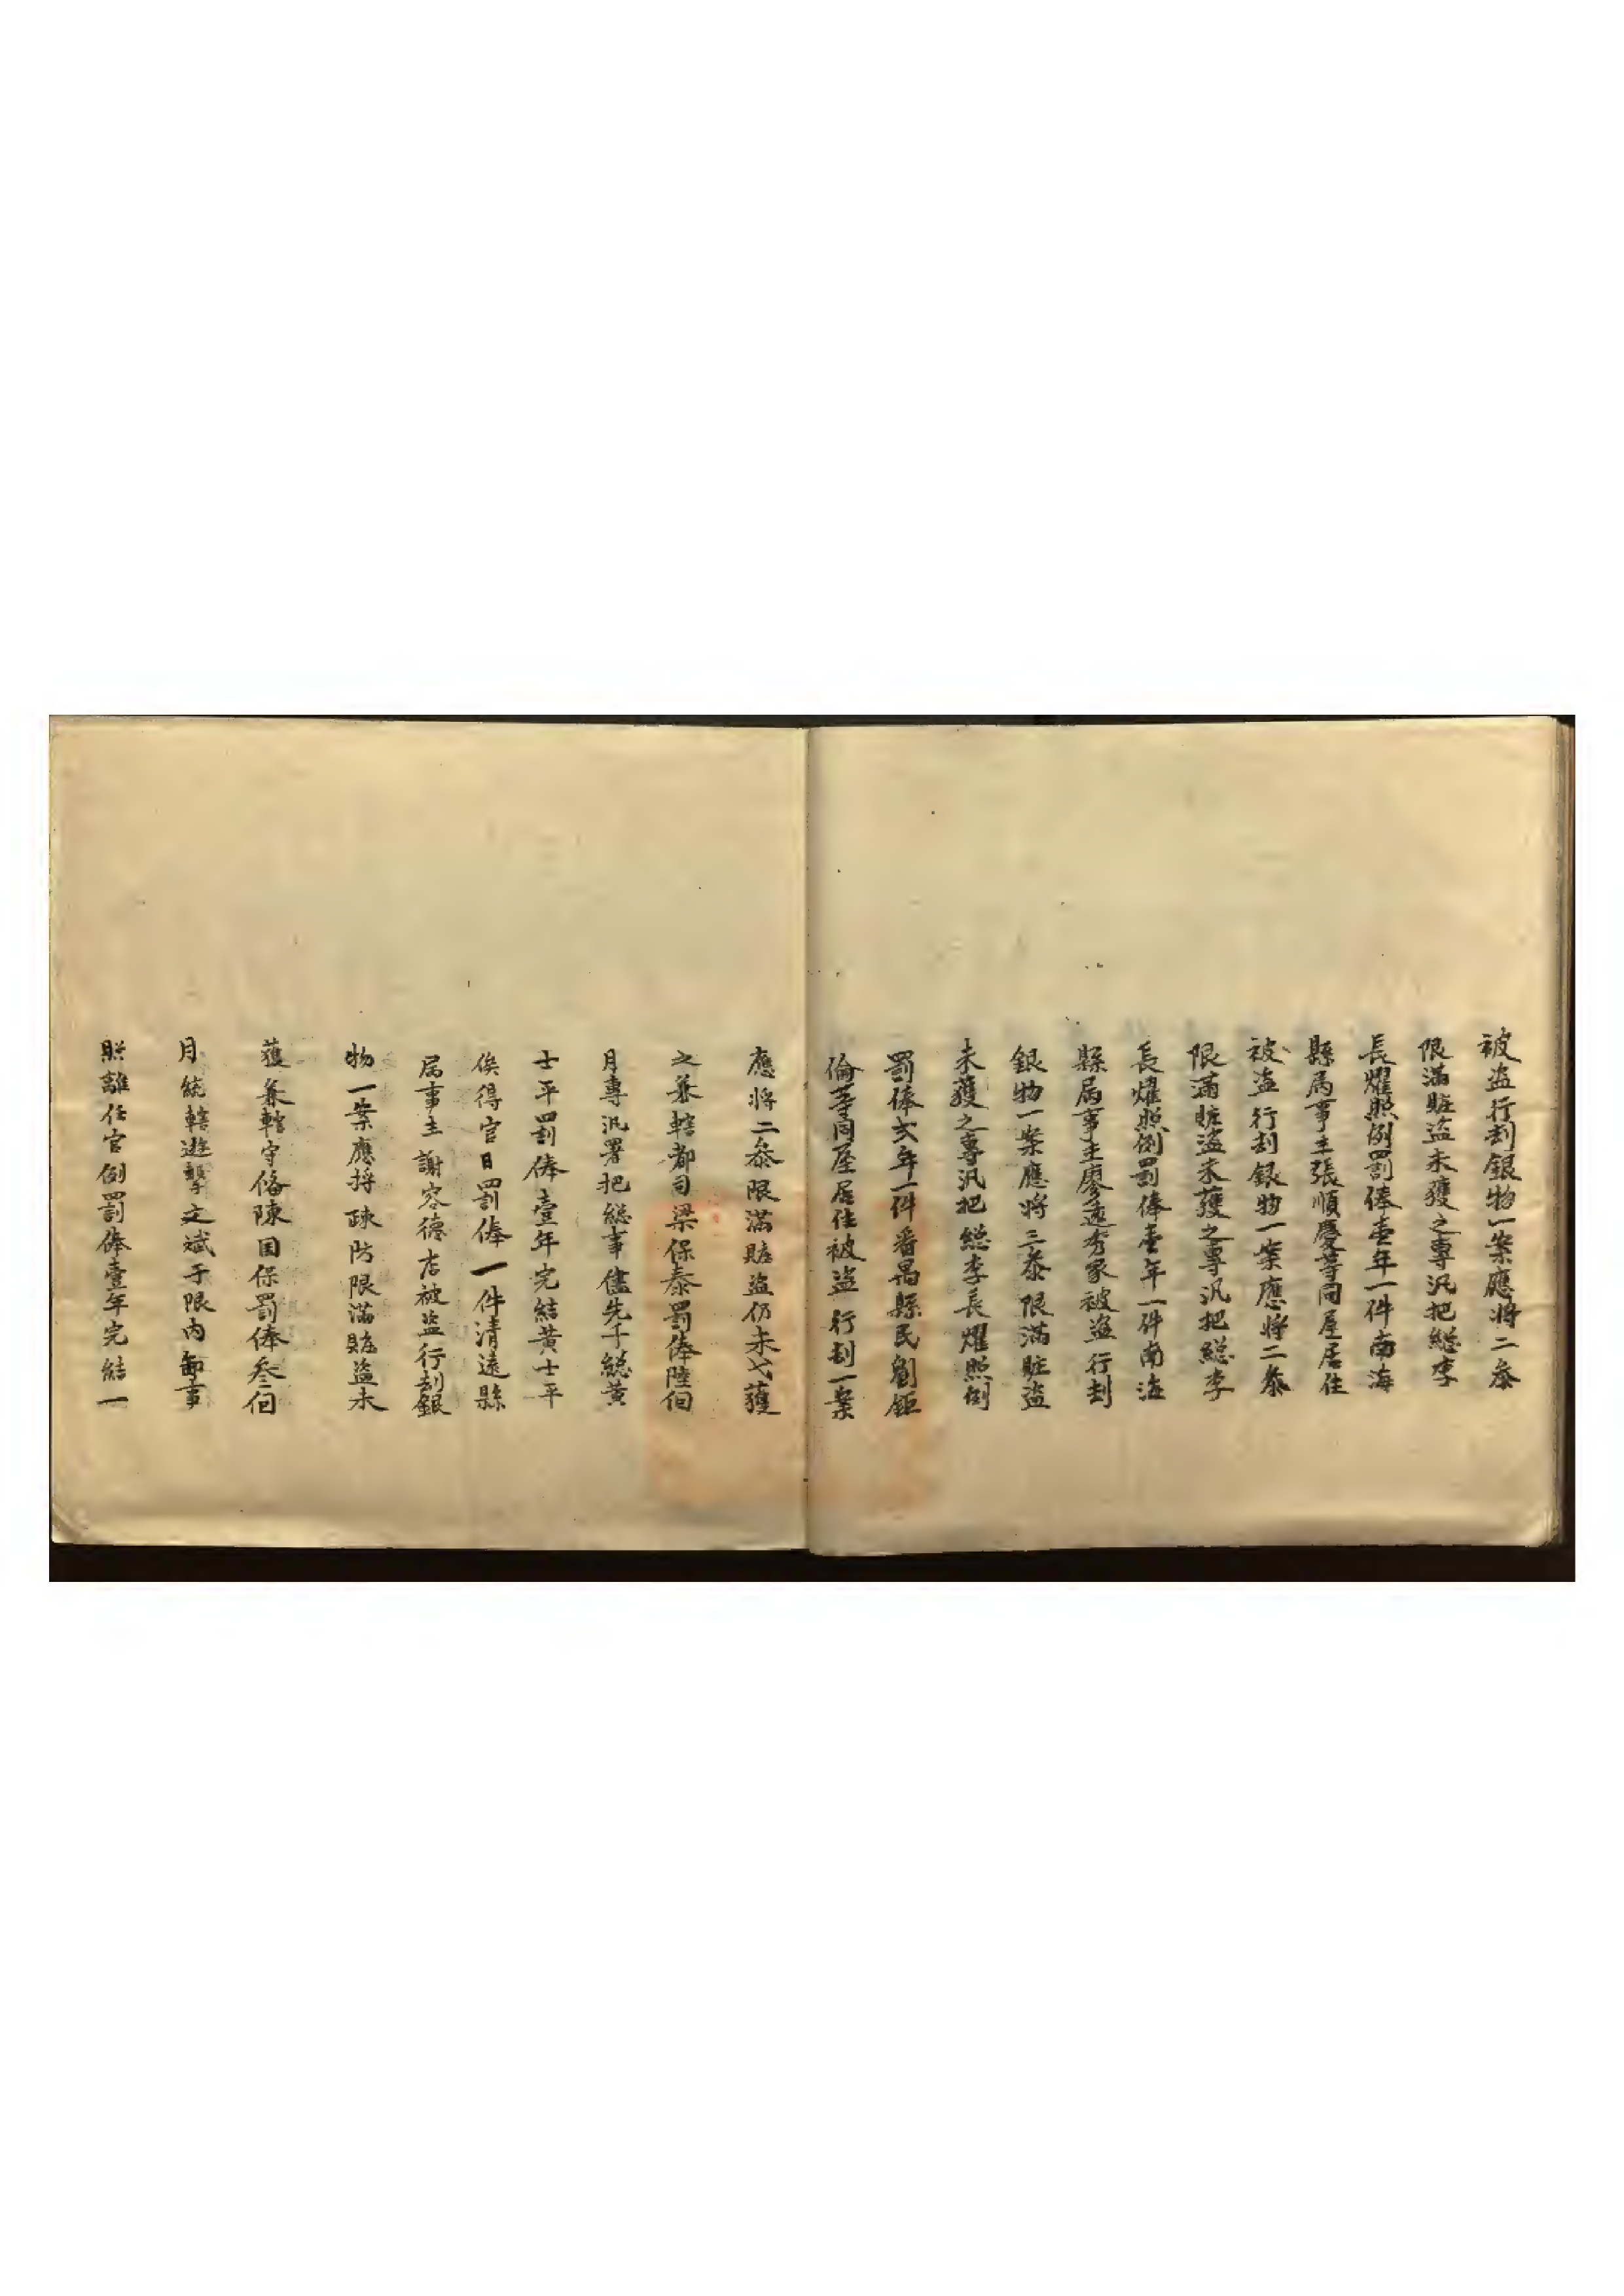 被盗行刦銀物一案應將二叅
限滿賍盗未獲之專汛把総李
長燿照例罰俸壹年一件南海
縣属事主張順慶等同屋居住
被盗行刦銀物一案應將二叅
限滿賍盗未獲之專汛把総李
長燿照例罰俸壹年一件南海
縣属事主廖遠秀家被盗行刦
銀物一案應將三叅限滿賍盗
未獲之專汛把総李長燿照例
罰俸弍年一件番禺縣民劉鉅
倫等同屋居住被盗行刦一案
應將二叅限滿賍盗仍未弋獲
之兼轄都司梁保泰罰俸陸個
月專汛署把総事儘先千総黄
士平罰俸壹年完結黄士平
俟得官日罰俸一件清遠縣
属事主謝容德店被盗行刦銀
物一案應將疎防限滿賍盗未
獲兼轄守俻陳国保罰俸叁個
月統轄遊擊文斌于限内卸事
照離任官例罰俸壹年完結一